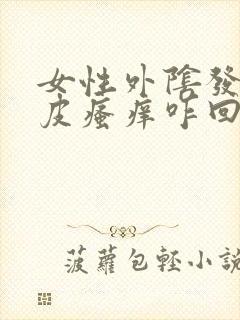 女性外陰發
皮瘙痒咋回
菠蘿包輕小說